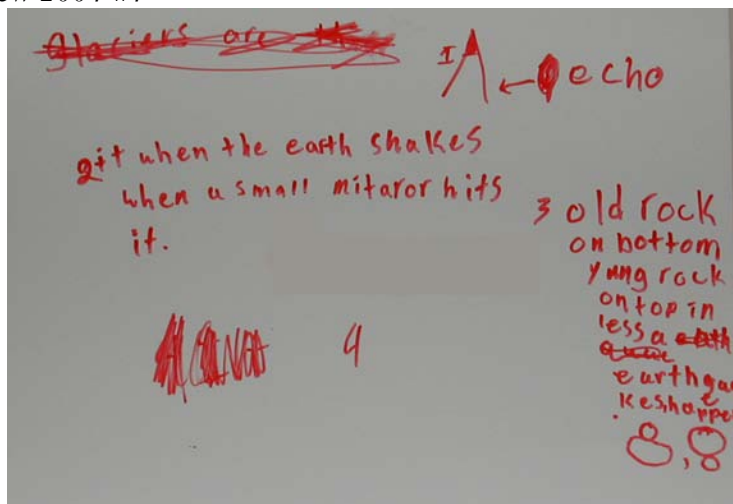 Glaciers are
I A ← echo
2 it when the earth shakes
when a small mitaror hits
it.
3 old rock
on bottom
yung rock
on top in
less a
earthqua
kes happe
4